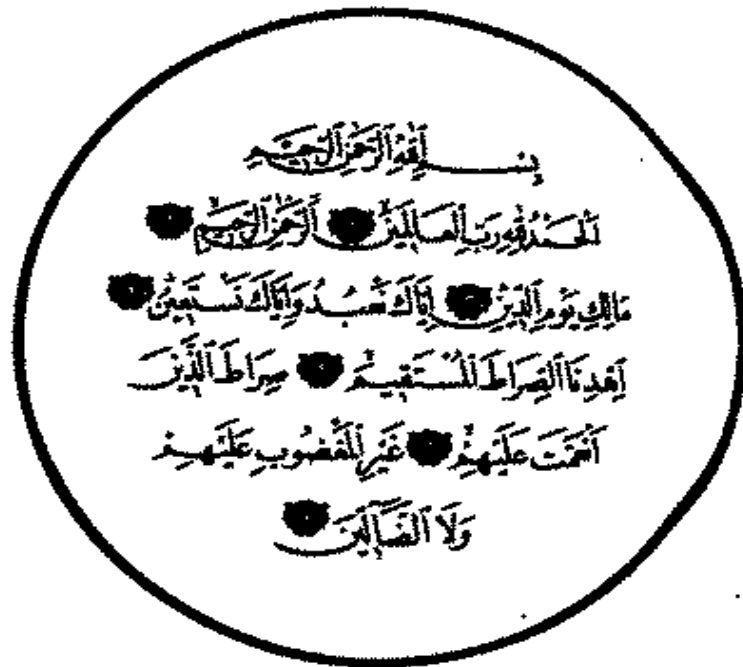 بِسْــــمِ اللَّهِ الرَّحْمَٰنِ الرَّحِيمِ
الْحَمْدُ لِلَّهِ رَبِّ الْعَالَمِينَ الرَّحْمَٰنِ الرَّحِيمِ
مَالِكِ يَوْمِ الدِّينِ إِيَّاكَ نَعْبُدُ وَإِيَّاكَ نَسْتَعِينُ
اهْدِنَا الصِّرَاطَ الْمُسْتَقِيمَ صِرَاطَ الَّذِينَ
أَنْعَمْتَ عَلَيْهِمْ غَيْرِ الْمَغْضُوبِ عَلَيْهِمْ
وَلَا الضَّالِّينَ